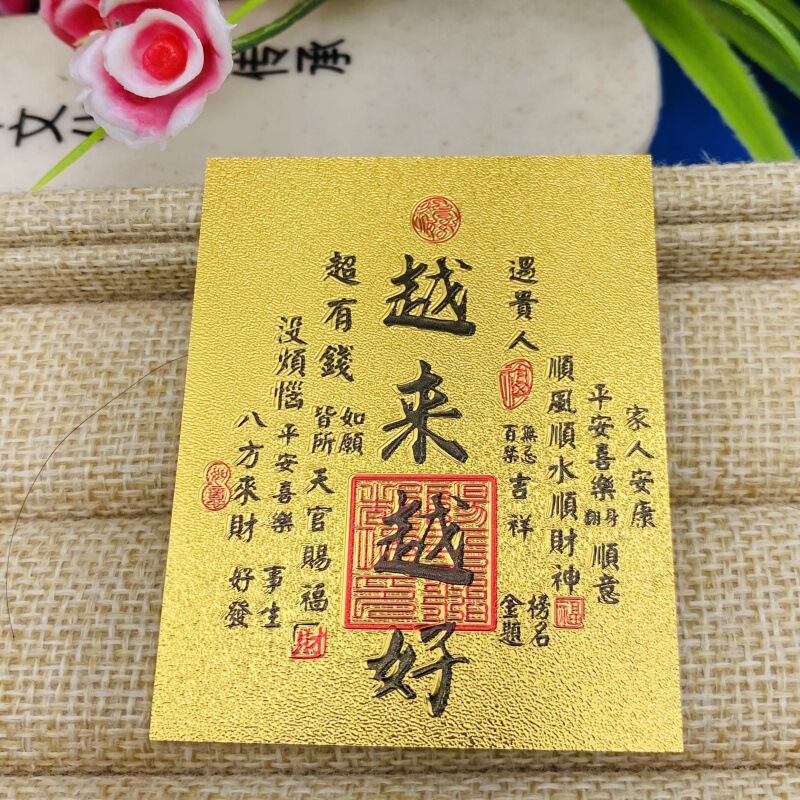 文
传承
家人安康
平安喜樂
順意
順風順水順財神
福
榜名
金題
遇貴人
百無
禁忌
吉祥
越来越好
超有錢
如願
皆所
天官賜福
財
没煩惱
平安喜樂
事生
好發
八方來財